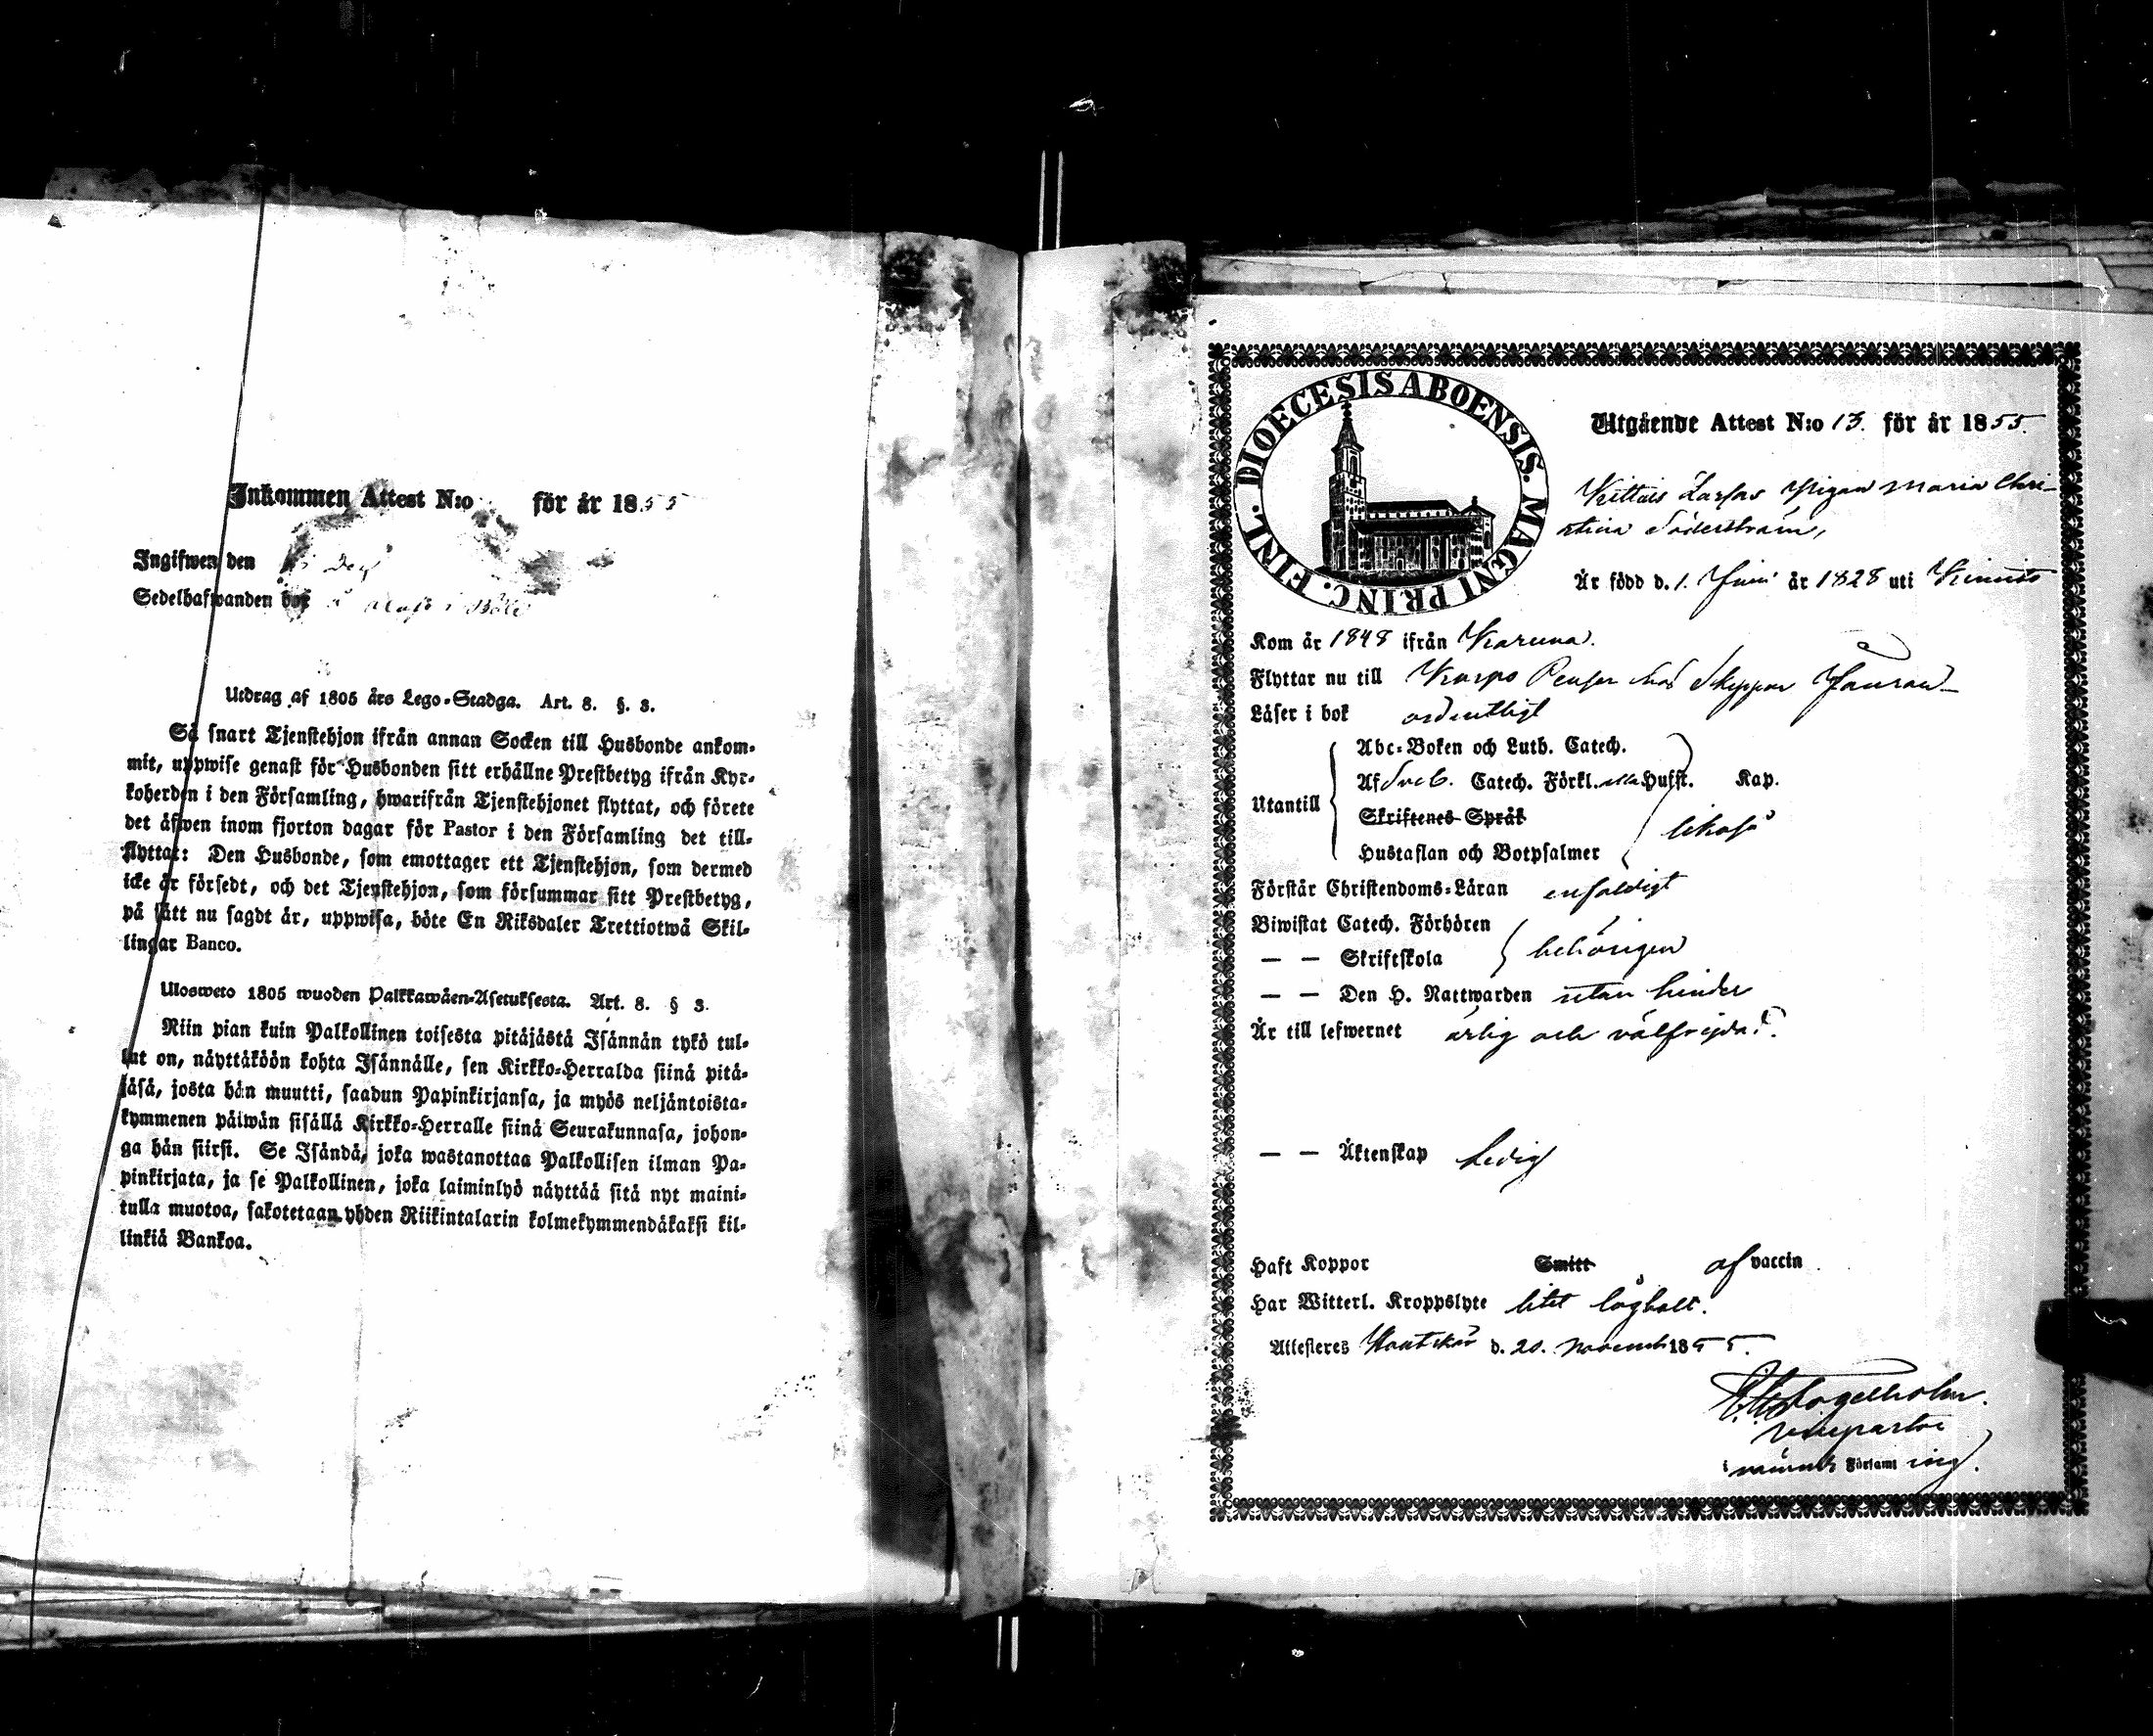 Inkommen Attest N:o för år 1855
Ingifwen den
Sedelhafwanden hos
Utdrag af 1805 års Lego-Stadga. Art. 8. §. 3.
Så snart Tjenstehjon ifrån annan Socken till Husbonde ankom-
mit, uppwise genast för Husbonden sitt erhållne Prestbetyg ifrån Kyr-
koherden i den Församling, hwarifrån Tjenstehjonet flyttat, och förete
det äfwen inom fjorton dagar för Pastor i den Församling det till-
flyttat: Den Husbonde, som emottager ett Tjenstehjon, som dermed
icke är försedt, och det Tjenstehjon, som försummar sitt Prestbetyg,
på sätt nu sagdt är, uppwisa, böte En Riksdaler Trettiotwå Skil-
lingar Banco.
Ulosweto 1805 wuoden Palkkawäen-Asetuksesta. Art. 8. § 3.
Niin pian kuin Palkollinen toisesta pitäjästä Isännän tykö tul-
lut on, näyttäköön kohta Isännälle, sen Kirkko-Herralda siinä pitä-
jäsä, josta hän muutti, saadun Papinkirjansa, ja myös neljäntoista-
kymmenen päiwän sisällä Kirkko-Herralle siinä Seurakunnasa, johon-
ga hän siirsi. Se Isändä, joka wastanottaa Palkollisen ilman Pa-
pinkirjata, ja se Palkollinen, joka laiminlyö näyttää sitä nyt maini-
tulla muotoa, sakotetaan yhden Riikintalarin kolmekymmendäkaksi kil-
linkiä Bankoa.
FINL. DIOECESIS ABOENSIS. MAGNI PRINC.
Utgående Attest N:o 13. för år 1855.
Pigan Maria Chri-
stina Söderström,
Är född d. 1. Juni år 1828 uti Kimito
Kom år 1848 ifrån Karuna.
Flyttar nu till Korpo hos Skeppar
Läser i bok ordentligt
Utantill
Abc-Boken och Luth. Catech.
Af Sveb. Catech. Förkl. Hufst. Kap.
Skriftenes Språk
Hustaflan och Botpsalmer
likaså
Förstår Christendoms-Läran enfaldigt
Biwistat Catech. Förhören
— — Skriftskola
behörigen
— — Den H. Nattwarden utan hinder
Är till lefwernet ärlig och välfrejdad.
— — Äktenskap Ledig
Haft Koppor Smitt af vaccin
Har Witterl. Kroppslyte litet låghalt.
Attesteres Houtskär d. 20. November 1855.
Vicepastor
i nämnde Församl ing.